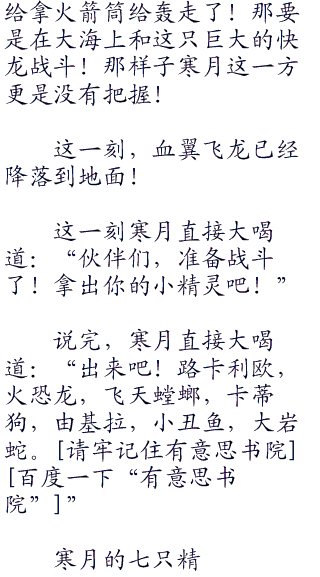 给拿火箭筒给轰走了！那要
是在大海上和这只巨大的快
龙战斗！那样子寒月这一方
更是没有把握！
这一刻，血翼飞龙已经
降落到地面！
这一刻寒月直接大喝
道：“伙伴们，准备战斗
了！拿出你的小精灵吧！”
说完，寒月直接大喝
道：“出来吧！路卡利欧，
火恐龙，飞天螳螂，卡蒂
狗，由基拉，小丑鱼，大岩
蛇。[请牢记住有意思书院]
[百度一下“有意思书
院”]”
寒月的七只精